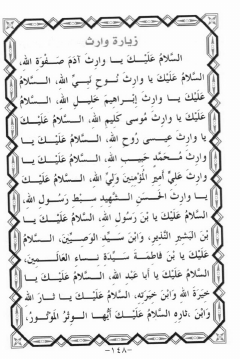 زيارة وارث
السَّلامُ عَلَيْـكَ يـا وارِثَ آدَمَ صَـفْوَةِ اللهِ،
السَّلامُ عَلَيْكَ يا وارِثَ نُـوحٍ نَبـيِّ اللهِ، السَّـلامُ
عَلَيْكَ يـا وارِثَ إبْراهيمَ خَليلِ اللهِ، السَّـلامُ
عَلَيْكَ يا وارِثَ مُوسى كَليمِ اللهِ، السَّلامُ عَلَيْـكَ
يا وارِثَ عيسى رُوحِ اللهِ، السَّلامُ عَلَيْـكَ يـا
وارِثَ مُـحَمَّدٍ حَبيبِ اللهِ، السَّلامُ عَلَيْـكَ يـا
وارِثَ عَلِيٍّ أميرِ المُؤْمِنينَ وَليِّ اللهِ، السَّلامُ عَلَيْـكَ
يـا وارِثَ الحَسَنِ الشَّهيدِ سِبْطِ رَسُولِ اللهِ،
السَّلامُ عَلَيْكَ يا بْنَ رَسُولِ اللهِ، السَّلامُ عَلَيْكَ يا
بْنَ البَشيرِ النَّذيرِ، وَابْنَ سَيِّدِ الوَصِيّينَ، السَّـلامُ
عَلَيْكَ يا بْنَ فاطِمَةَ سَيِّدَةِ نِساءِ العالَمـينَ،
السَّلامُ عَلَيْكَ يا أبا عَبْدِ اللهِ، السَّلامُ عَلَيْكَ يـا
خِيَرَةَ اللهِ وَابْنَ خِيَرَتِهِ، السَّلامُ عَلَيْـكَ يـا ثـارَ اللهِ
وَابْنَ ثارِهِ، السَّلامُ عَلَيْـكَ أيُّهـا الـوِتْرُ المَوْتُـورُ،
-١٤٨-